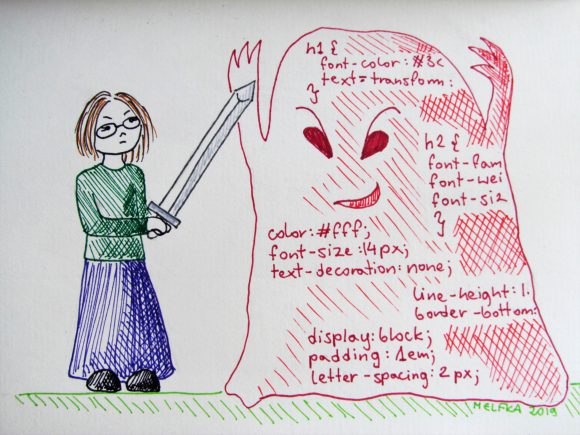 h1 {
font-color: #3c
text=transform:
}
h2 {
font-fam
font-wei
font-siz
}
color: #fff;
font-size: 14px;
text-decoration: none;
line-height: 1.
border-bottom:
display: block;
padding: 1em;
letter-spacing: 2px;
MELFKA 2019